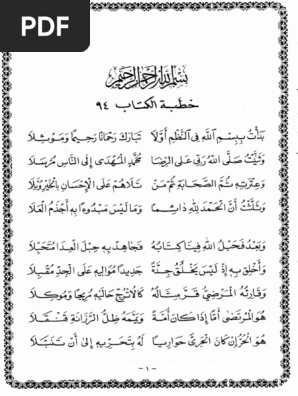 PDF
بِسْمِ اللهِ الرَّحْمٰنِ الرَّحِيمِ
خطبة الكتاب ٩٤
بَدَأْتُ بِبِسْمِ اللهِ فِي النَّظْمِ أَوَّلَا تَبَارَكَ رَحْمَانًا رَحِيمًا وَمَوْئِلَا
وَثَنَّيْتُ صَلَّى اللهُ رَبِّي عَلَى الرِّضَا مُحَمَّدٍ الْمُهْدَى إِلَى النَّاسِ مُرْسَلَا
وَعِتْرَتِهِ ثُمَّ الصَّحَابَةِ ثُمَّ مَنْ تَلَاهُمْ عَلَى الْإِحْسَانِ بِالْخَيْرِ وُبَّلَا
وَثَلَّثْتُ أَنَّ الْحَمْدَ لِلَّهِ دَائِمًا وَمَا لَيْسَ مَبْدُوءًا بِهِ أَجْذَمُ الْعَلَا
وَبَعْدُ فَحَبْلُ اللهِ فِينَا كِتَابُهُ فَجَاهِدْ بِهِ حِبْلَ الْعِدَا مُتَحَبِّلَا
وَأَخْلِقْ بِهِ إِذْ لَيْسَ يَخْلُقُ جِدَّةً جَدِيدًا مُوَالِيهِ عَلَى الْجِدِّ مُقْبِلَا
وَقَارِئُهُ الْمَرْضِيُّ قَرَّ مِثَالُهُ كَالاتْرُجِّ حَالَيْهِ مُرِيحًا وَمُوكِلَا
هُوَ الْمُرْتَضَى أَمًّا إِذَا كَانَ أُمَّةً وَيَمَّمَهُ ظِلُّ الرَّزَانَةِ قَنْقَلَا
هُوَ الْحُرُّ إِنْ كَانَ الْحَرِيَّ حَوَارِيًا لَهُ بِتَحَرِّيهِ إِلَى أَنْ تَنَبَّلَا
- ١ -